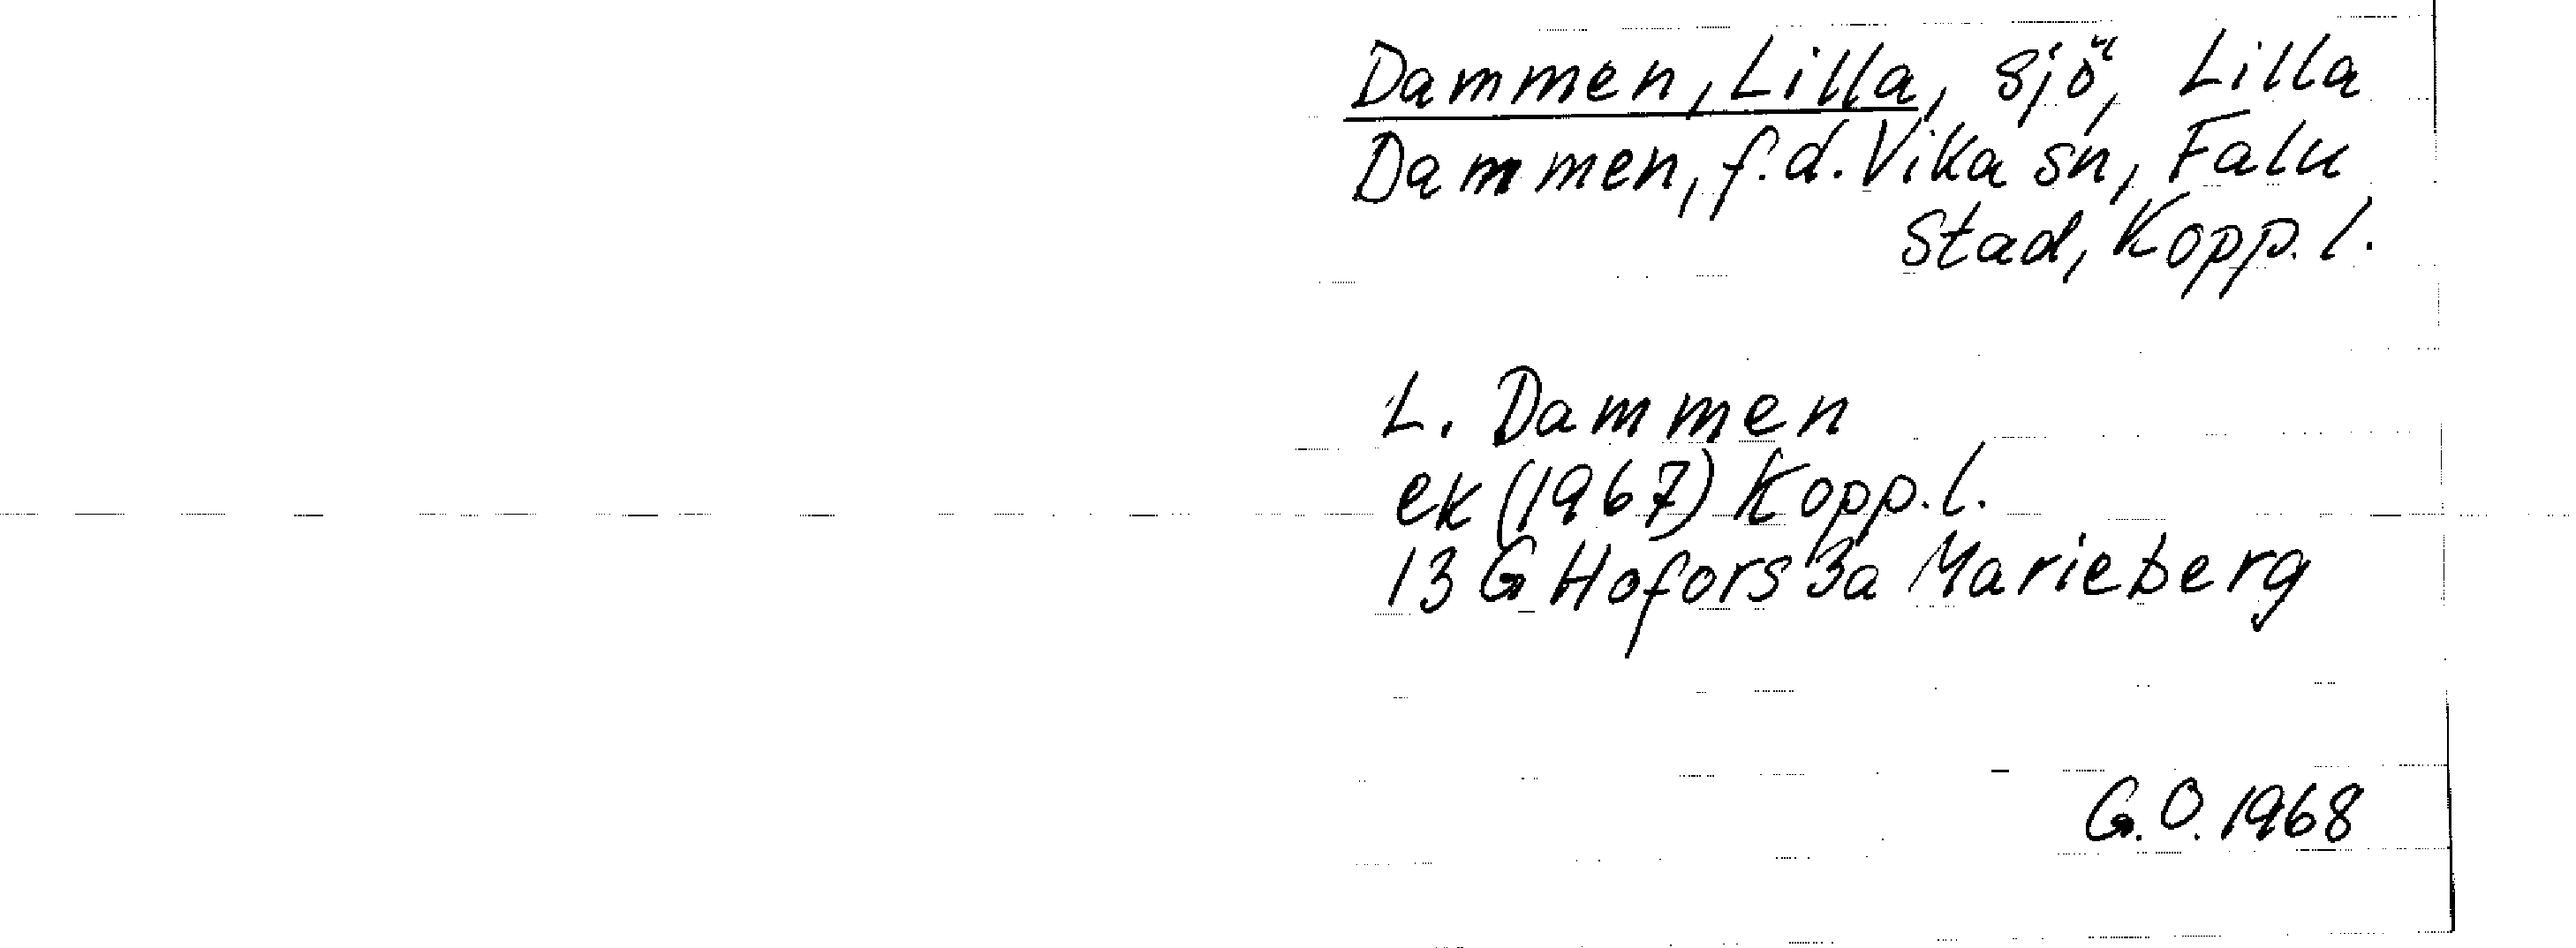 Dammen, Lilla, sjö, Lilla
Dammen, f.d. Vika sn, Falu
Stad, Kopp. l.
L. Dammen
ek (1967) Kopp. l.
13 G Hofors 3a Marieberg
G.O. 1968